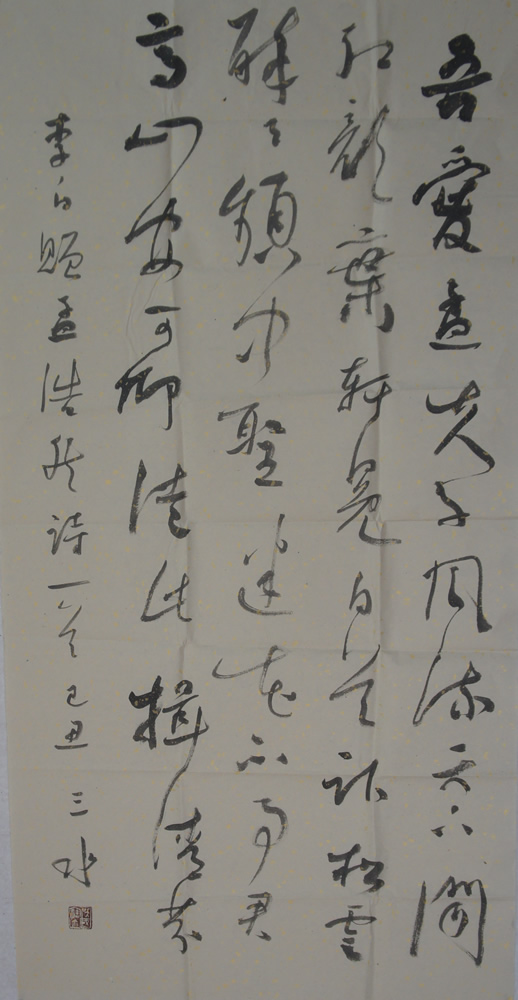 吾愛孟夫子風流天下聞
紅顏棄軒冕白首卧松雲
醉月頻中聖迷花不事君
高山安可仰徒此揖清芬
李白贈孟浩然詩一首 己丑 三水